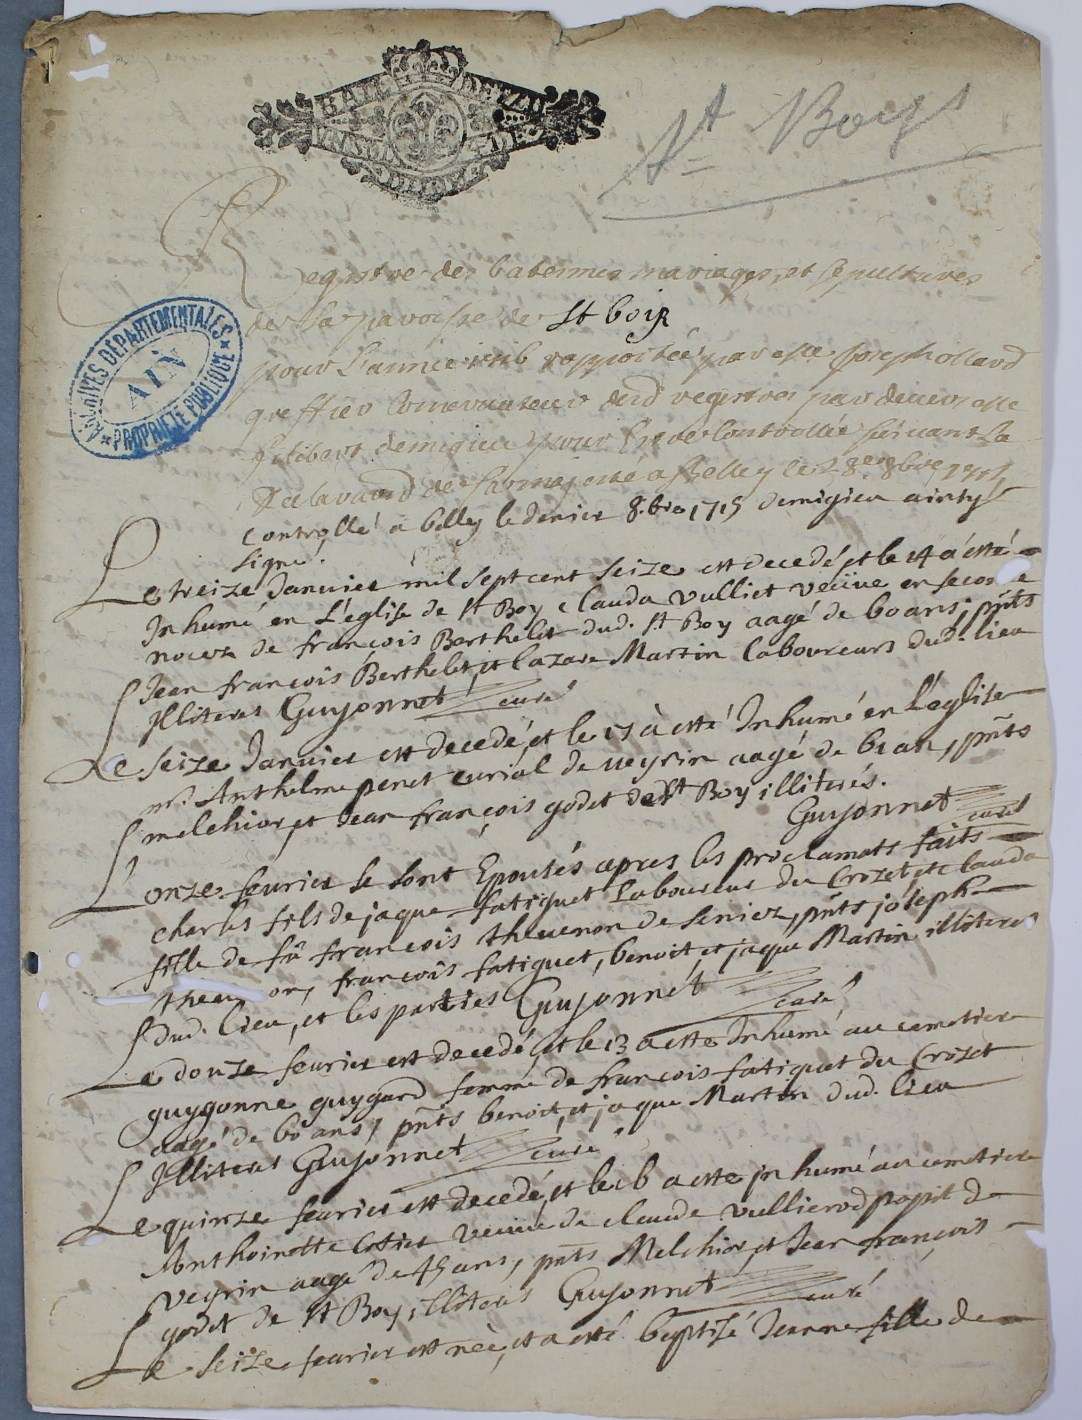 St Boys
Registre des batesmes mariages, et sepultures
de la paroisse de St bois
pour l'année rapportée par Joseph ollard
greffier Conservateur desd registres par devers
demigieu pour Estre Controollée suivant la
de sa majesté a Belley le 28e 8bre 1715
Controllé a belley le denier 8.bre 1715 demigieu ainsy
signé.
Le treize Janvier mil sept cent seize est decedé, et le 14 a esté
Inhumé en L'eglise de St Boy Clauda vulliet veüve en seconde
noces de françois Berthelet dud. St Boy aagé de 60 ans, pñts
Jean françois Berthelet, et Lazare Martin laboureurs dud. lieu
Illiteres Guyonnet curé
Le seize Janvier est decedé, et le 17 à esté Inhumé en L'eglise
mr. Anthelme penet curial de veyrin aagé de 61 an, pñts
melchior, et Jean françois godet de St Boy illiterés.
Guyonnet curé
L'onze fevrier se sont Epousés apres les proclamats faits
charles fils de jaque fatiguet Laboureur du Crozet, et clauda
fille de fû françois thevenon de seniez, pñts joseph
theu on, françois fatiguet, benoit et jaque Martin illiteres
dud. lieu, et les parties Guyonnet curé
Le douze fevrier est decedé, et le 13 a esté Inhumé au cemetiere
guygonne guygard femme de françois fatiguet du Crozet
aagé de 60 ans, pñts benoit, et jaque Martin dud. lieu
Illiteres Guyonnet curé
Le quinze fevrier est decedé, et le 16 a esté jnhumé au cemetiere
Anthoinette Cotier veüve de claude vullierod papet de
veyrin aagé de 45 ans, pñts Melchior, et Jean françois
godet de St Boy illiteres Guyonnet curé
Le seize fevrier est née, et a esté baptisé Jeanne fille de
ARCHIVES DÉPARTEMENTALES
AIN
PROPRIÉTÉ PUBLIQUE